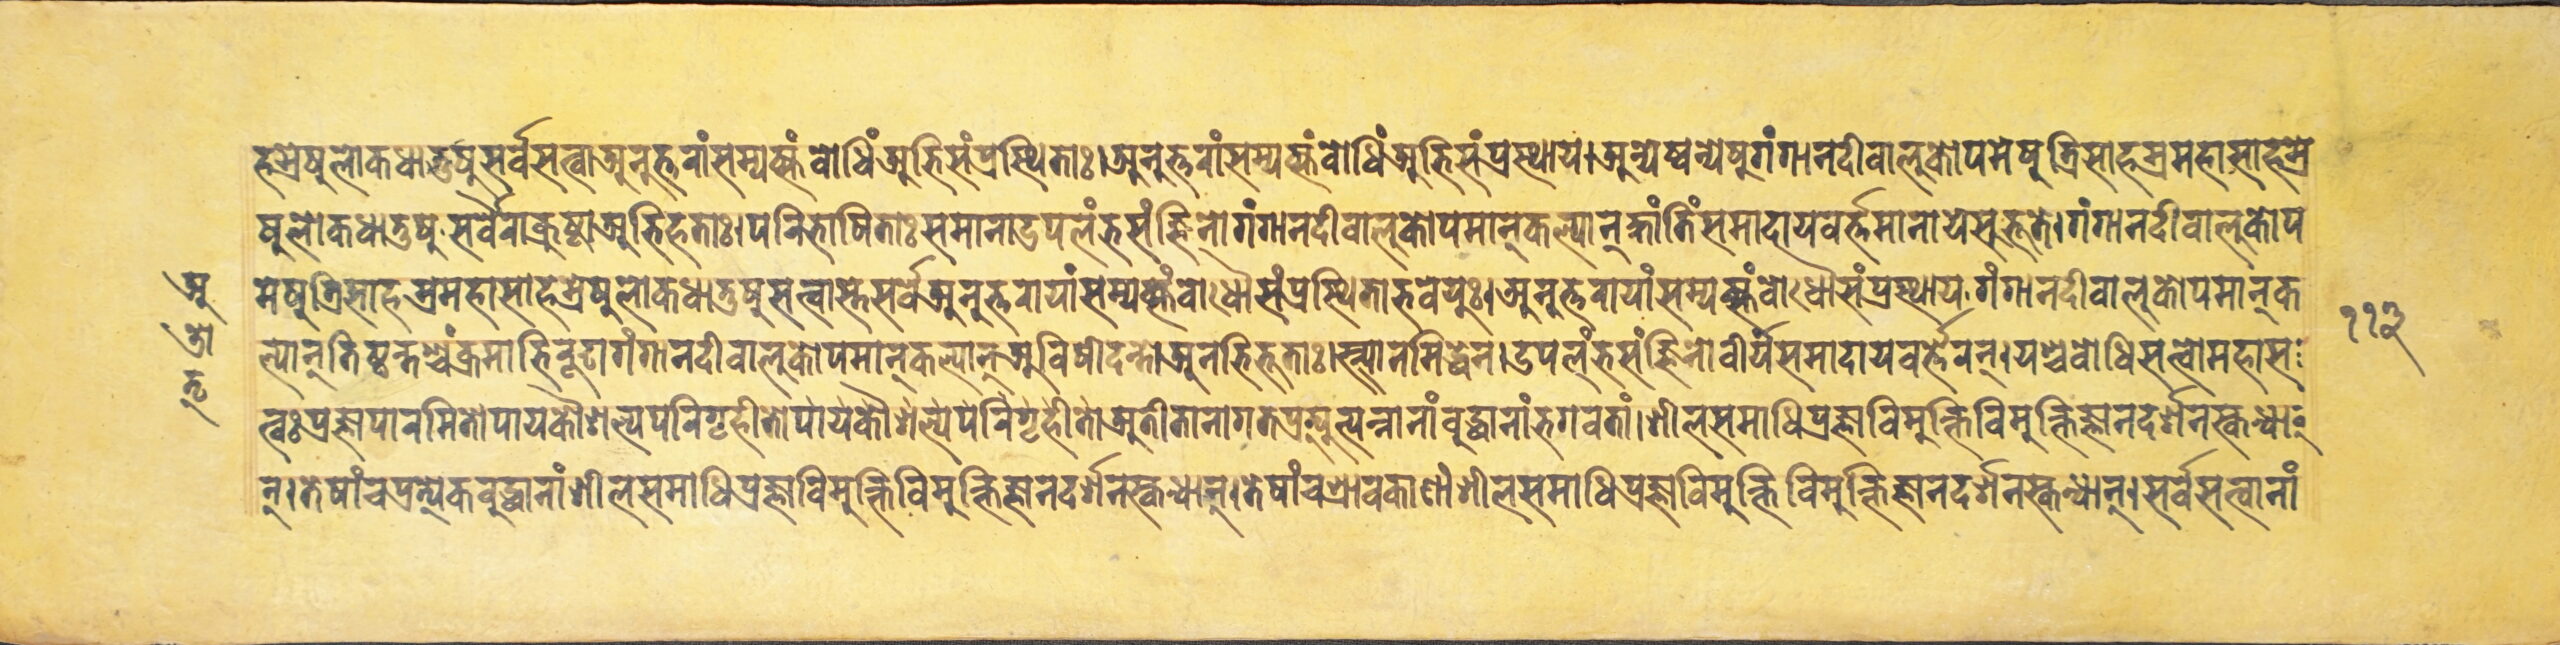 हस्रेषु लोकधातुषु सर्वसत्वा अनुत्तरां सम्यक्संबोधिं अभिसंप्रस्थिताः। अनुत्तरां सम्यक्संबोधिं अभिसंप्रस्थाय। अन्येष्वन्येषु गंगानदीवालुकोपमेषु त्रिसाहस्रमहासाहस्रे
षु लोकधातुषु सर्वैराक्रुष्टा अभिहताः। परिभाषिताः समाना उपलंभसंज्ञिनो गंगानदीवालुकोपमान् कल्पान् क्षांतिं समादाय वर्त्तमाना ये सुभूते। गंगानदीवालुकोप
मेषु त्रिसाहस्रमहासाहस्रेषु लोकधातुषु सत्वास्ते सर्वे अनुत्तरायां सम्यक्संबोधौ संप्रस्थिता भवेयुः। अनुत्तरायां सम्यक्संबोधौ संप्रस्थाय गंगानदीवालुकोपमान् क
ल्पान् तिष्ठन्तश्चंक्रमाभिरूढा गंगानदीवालुकोपमान् कल्पान् अविषीदन्तो अनभिभूताः। स्त्यानमिद्धेन। उपलंभसंज्ञिनो वीर्यं समादाय वर्त्तेरन्। यश्च बोधिसत्वो महास
त्वः प्रज्ञापारमितोपायकौशल्यपरिगृहीतोपायकौशल्यपरिगृहीतो अतीतानागतप्रत्युत्पन्नानां बुद्धानां भगवतां। शीलसमाधिप्रज्ञाविमुक्तिविमुक्तिज्ञानदर्शनस्कन्धा
न्। तेषां च प्रत्येकबुद्धानां शीलसमाधिप्रज्ञाविमुक्तिविमुक्तिज्ञानदर्शनस्कन्धान्। तेषां च श्रावकाणां शीलसमाधिप्रज्ञाविमुक्तिविमुक्तिज्ञानदर्शनस्कन्धान्। सर्वसत्वानां
११३